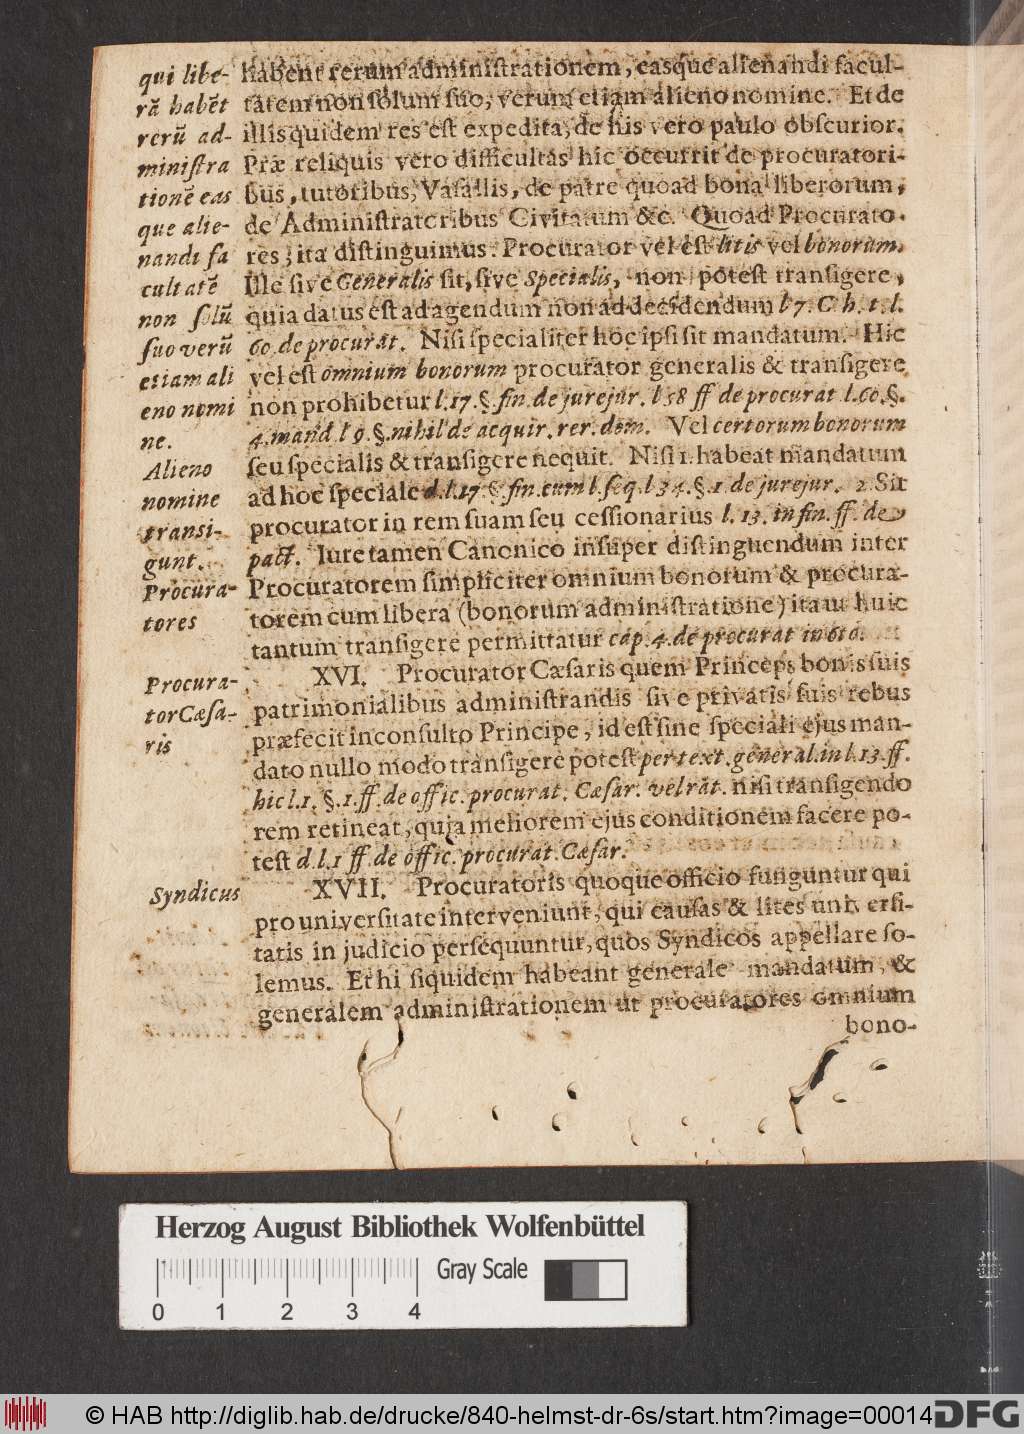 qui libe-
rā habēt
rerū ad-
ministra
tionē eas
que alie-
nandi fa
cultatē
non solū
suo verū
etiam ali
eno nomi
ne.
Alieno
nomine
transi-
gunt.
Procura-
tores
Procura-
tor Cæsa-
ris
Syndicus
habent rerum administrationem, easque alienandi facul-
tatem non solum suo, verum etiam alieno nomine. Et de
illis quidem res est expedita, de his vero paulo obscurior.
Præ reliquis vero difficultas hic occurrit de procuratori-
bus, tutoribus, Vasallis, de patre quoad bona liberorum,
de Administratoribus Civitatum &c. Quoad Procurato-
res, ita distinguimus. Procurator vel est litis vel bonorum.
Ille sive Generalis sit, sive Specialis, non potest transigere,
quia datus est ad agendum non ad decidendum l 7. C h. t. l.
60. de procurat. Nisi specialiter hoc ipsi sit mandatum. Hic
vel est omnium bonorum procurator generalis & transigere
non prohibetur l. 17. §. fin. de jurejur. l 58 ff de procurat l. 60. §.
4. mand. l 9. §. nihil de acquir. rer. dom. Vel certorum bonorum
seu specialis & transigere nequit. Nisi 1. habeat mandatum
ad hoc speciale d. l. 17. §. fin. cum l. seq. l 34. §. 1. de jurejur. 2. Sit
procurator in rem suam seu cessionarius l. 13. in fin. ff. de
pact. Iure tamen Canonico insuper distinguendum inter
Procuratorem simpliciter omnium bonorum & procura-
torem cum libera (bonorum administratione) ita ut huic
tantum transigere permittatur cap. 4. de procurat in 6to.
XVI. Procurator Cæsaris quem Princeps bonis suis
patrimonialibus administrandis sive privatis suis rebus
præfecit inconsulto Principe, id est sine speciali ejus man-
dato nullo modo transigere potest per text. general. in l. 13. ff.
hic l. 1. §. 1. ff. de offic. procurat. Cæsar. vel rat. nisi transigendo
rem retineat, quia meliorem ejus conditionem facere po-
test d. l. 1 ff. de offic. procurat. Cæsar.
XVII. Procuratoris quoque officio funguntur qui
pro universitate interveniunt, qui causas & lites universi-
tatis in judicio persequuntur, quos Syndicos appellare so-
lemus. Et hi siquidem habeant generale mandatum, &
generalem administrationem ut procuratores omnium
bono-
Herzog August Bibliothek Wolfenbüttel
Gray Scale
0 1 2 3 4
© HAB http://diglib.hab.de/drucke/840-helmst-dr-6s/start.htm?image=00014
DFG